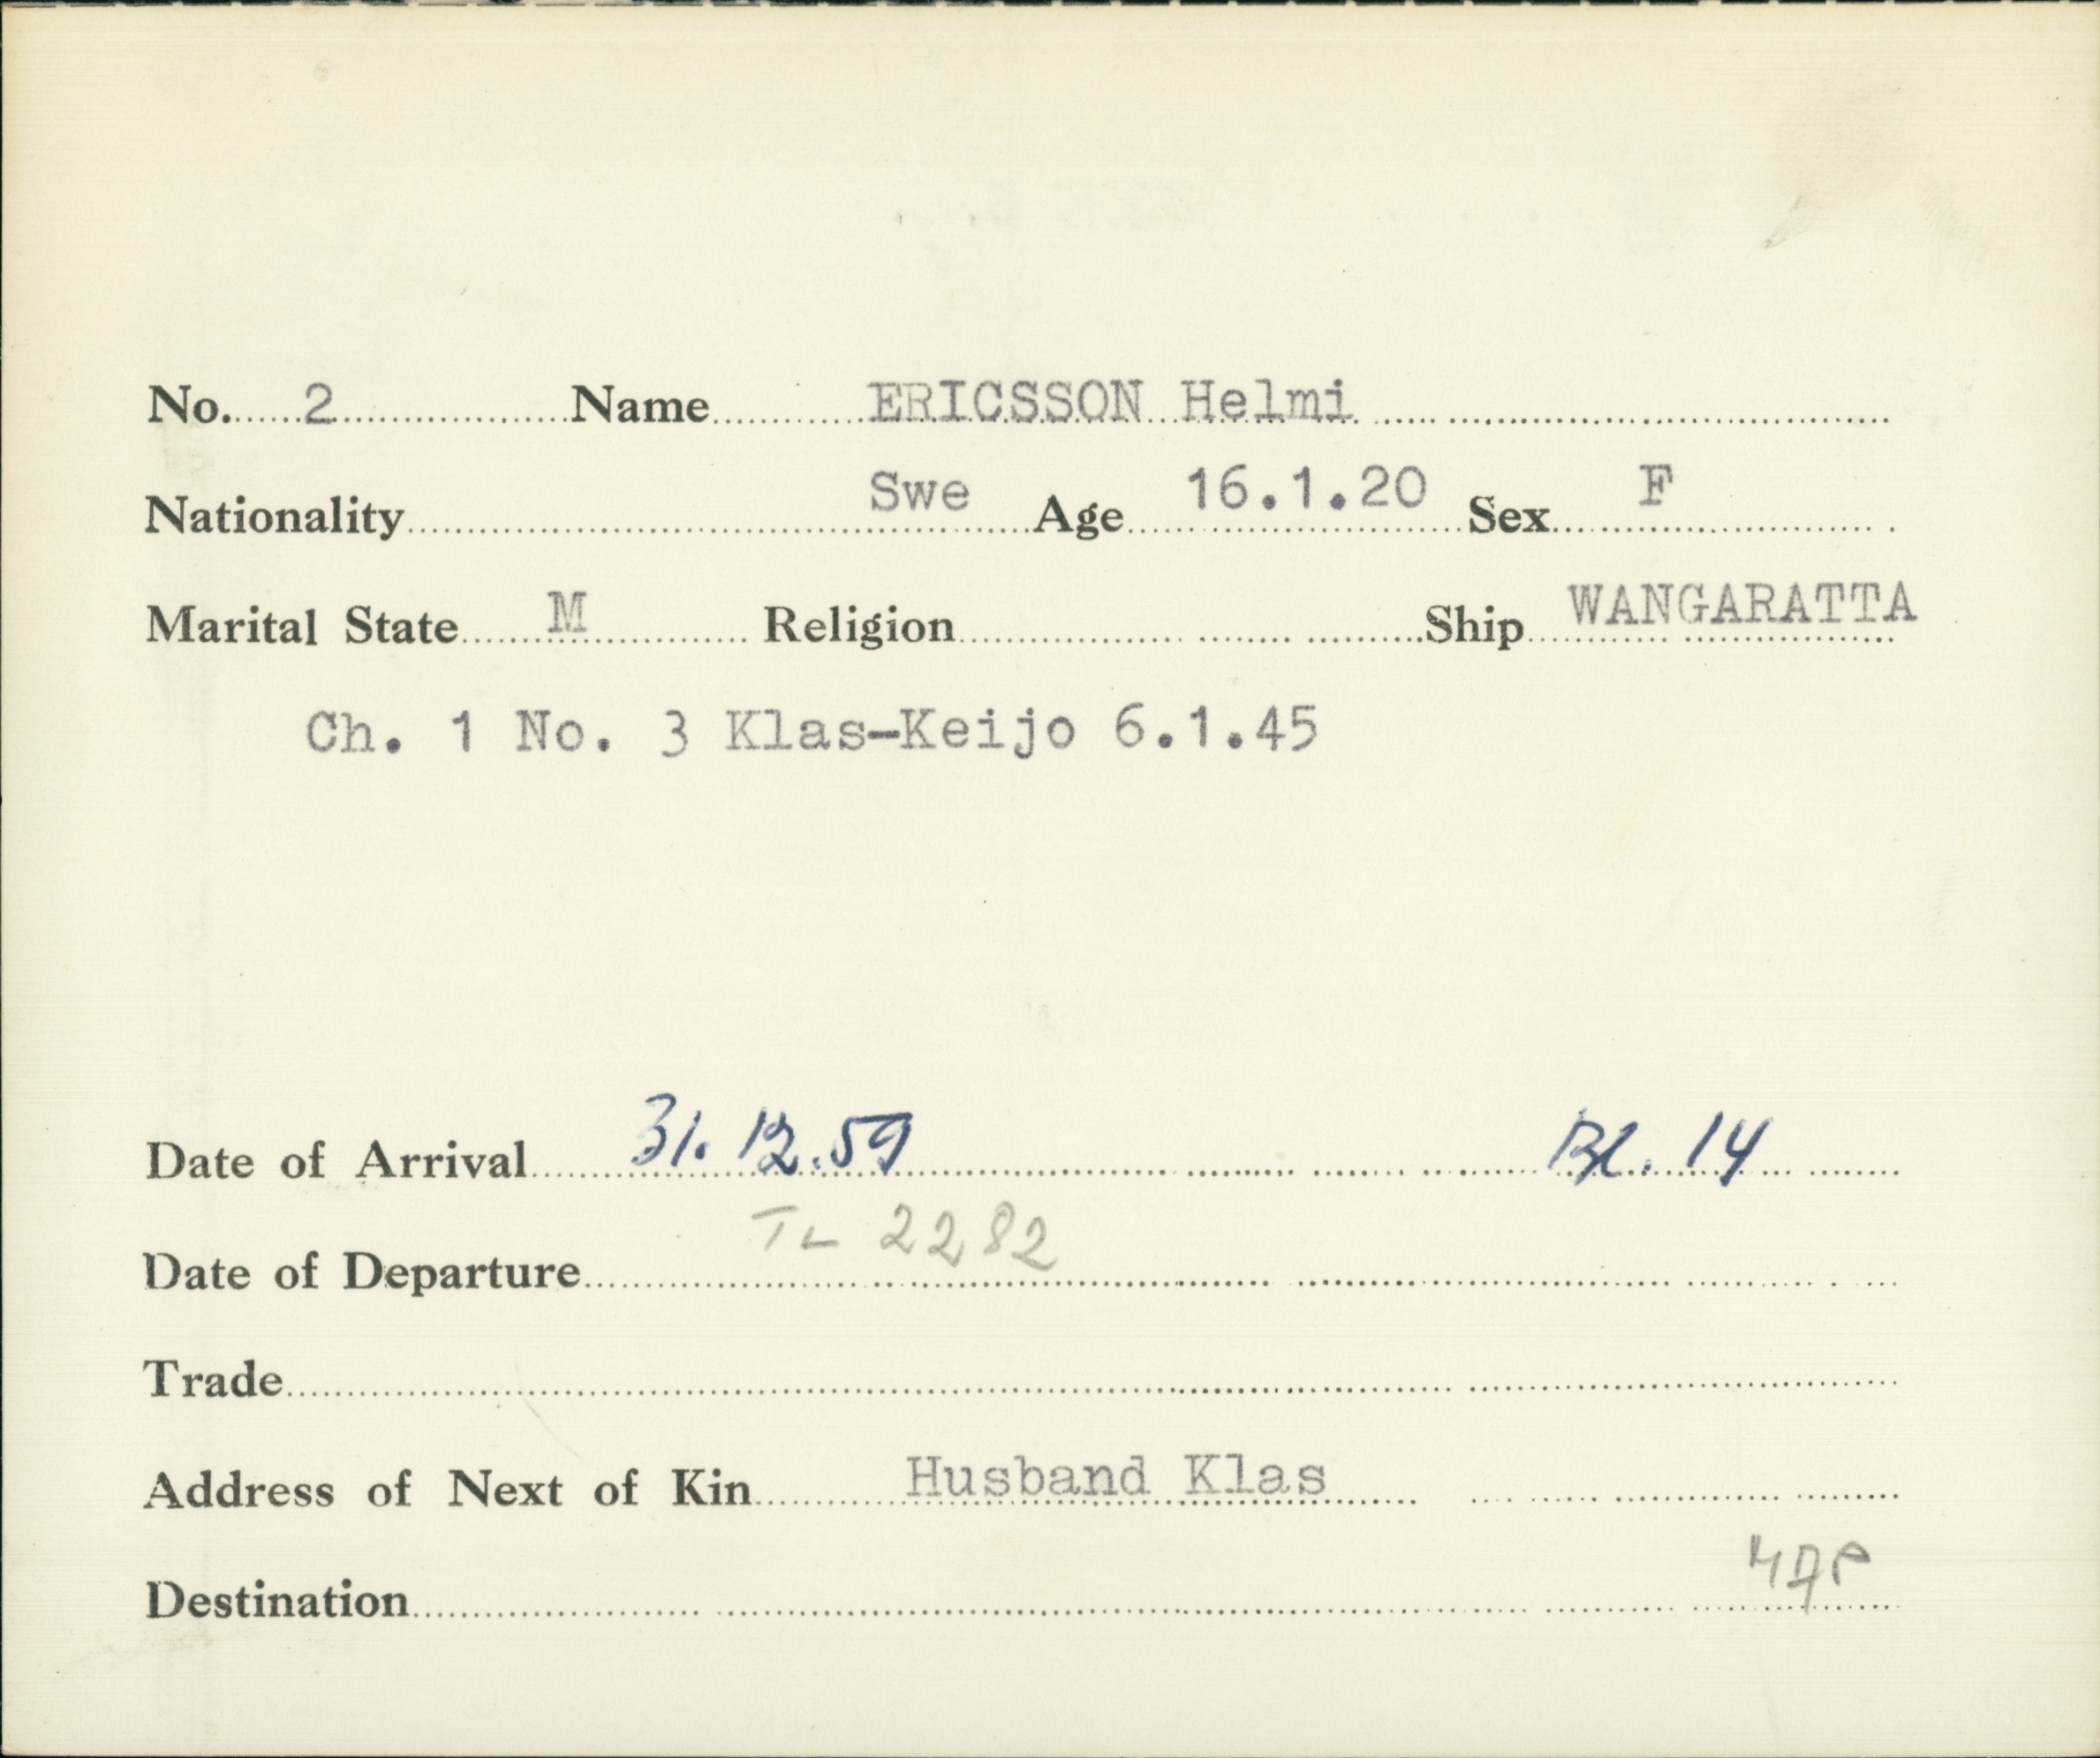 No. 2 Name ERICSSON Helmi
Nationality Swe Age 16.1.20 Sex F
Marital State M Religion Ship WANGARATTA
Ch. 1 No. 3 Klas-Keijo 6.1.45
Date of Arrival 31.12.59 Bl. 14
TL 2282
Date of Departure
Trade
Address of Next of Kin Husband Klas
Destination